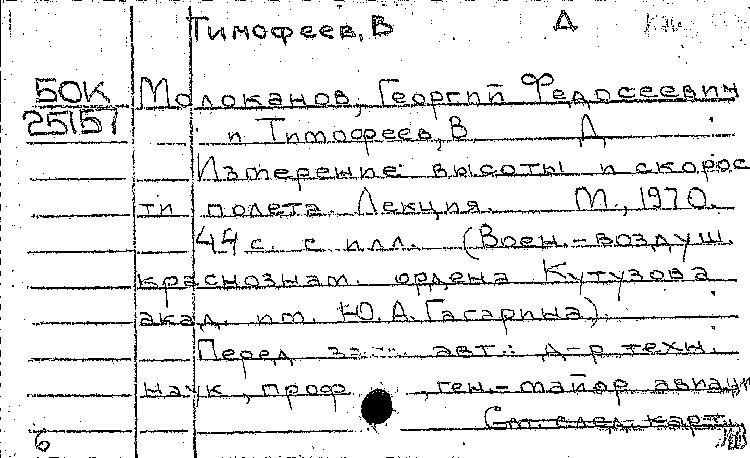 Тимофеев, В Д
50К Молоканов, Георгий Федосеевич
25157 и Тимофеев, В Д
Измерение высоты и скорос
ти полета. Лекция. М., 1970.
44 с. с илл. (Воен.-воздуш.
краснознам. ордена Кутузова
акад. им. Ю.А. Гагарина).
Перед загл. авт.: д-р техн.
наук, проф. , ген.-майор авиац
См. след. карт.
6